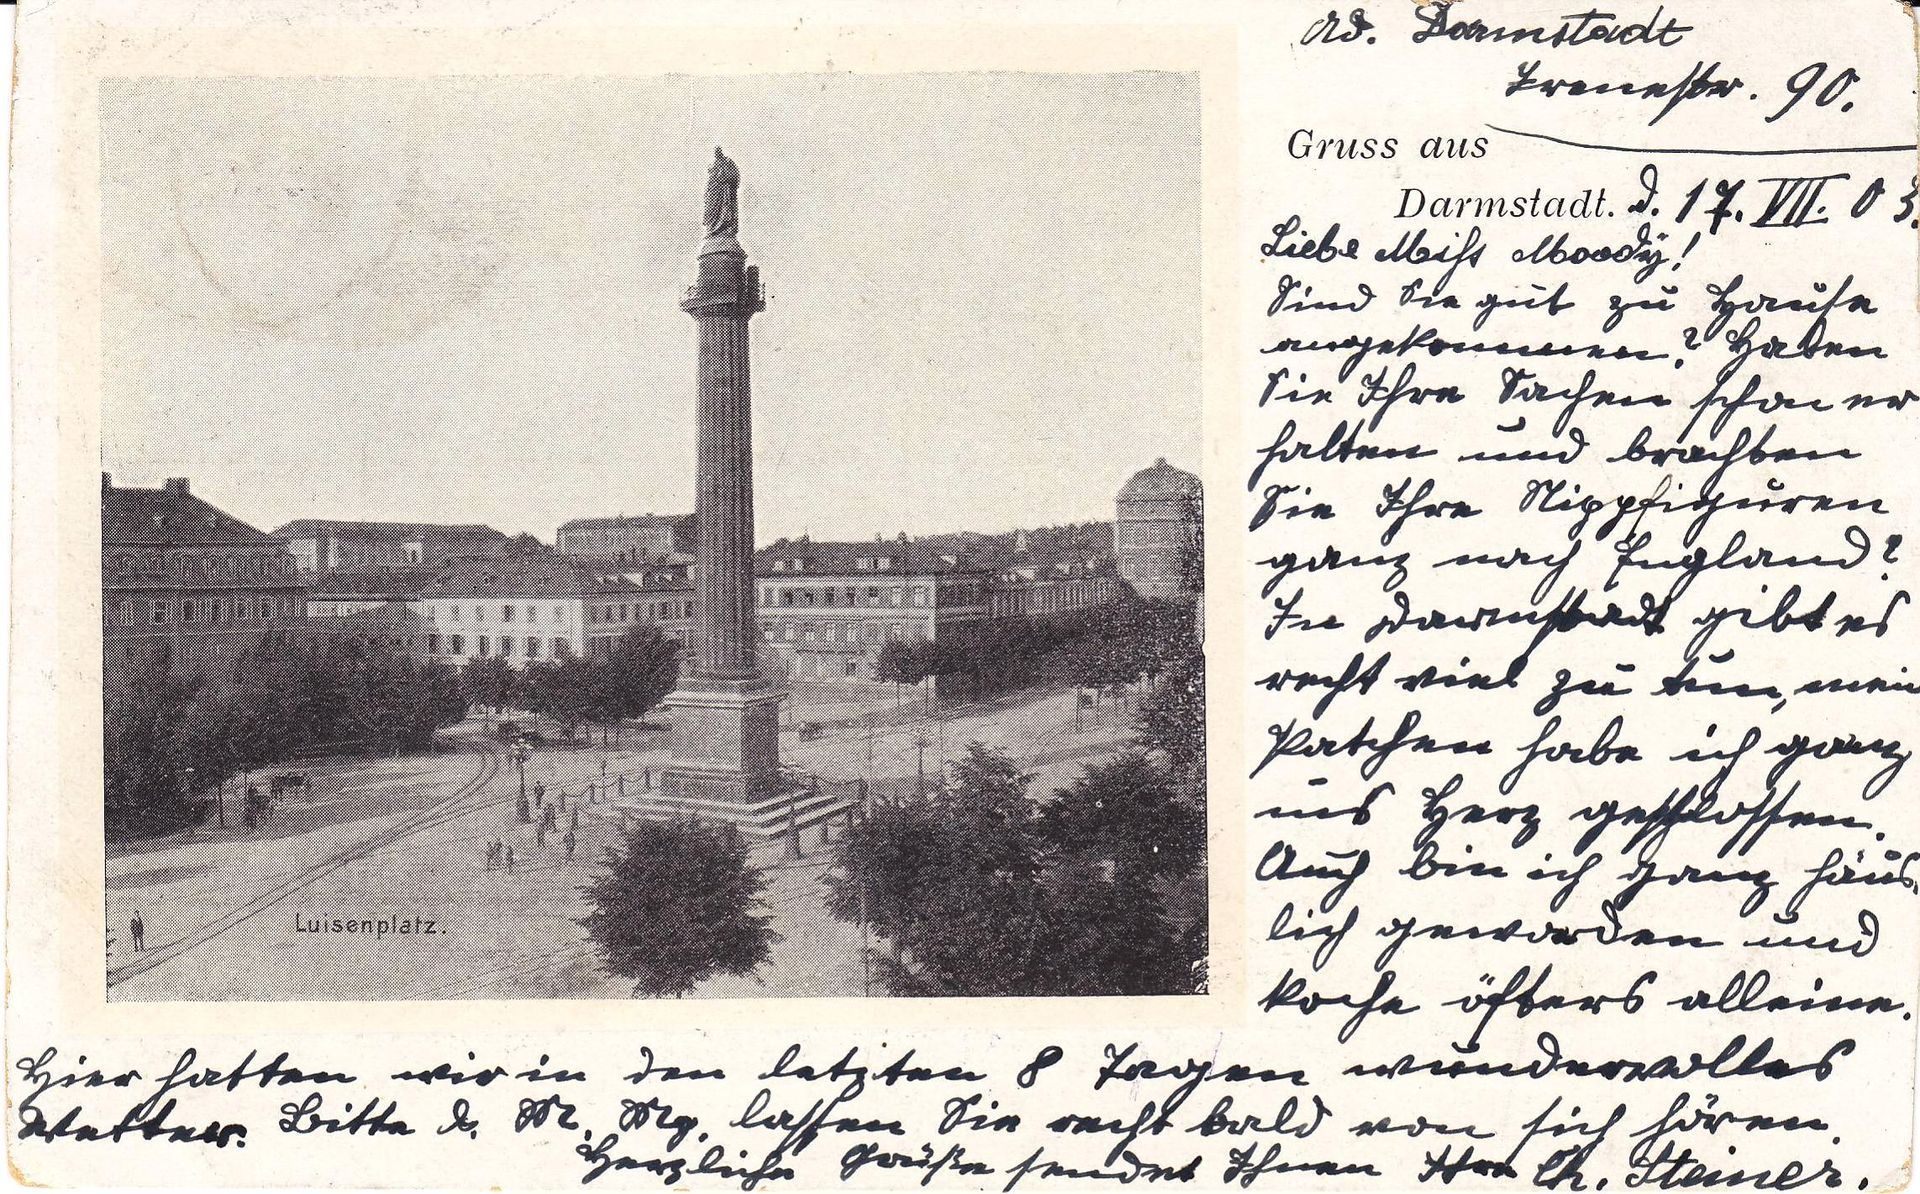 Ad. Darmstadt
Irenestr. 90.
Gruss aus
Darmstadt. d. 17. VII. 03.
Liebe Miss Moody!
Sind Sie gut zu Hause
angekommen? Haben
Sie Ihre Sachen schon er
halten und brachten
Sie Ihre Nippfiguren
ganz nach England?
In Darmstadt gibt es
recht viel zu tun, mein
Patchen habe ich ganz
ins Herz geschlossen.
Auch bin ich ganz häus-
lich geworden und
koche öfters alleine.
Luisenplatz.
Hier hatten wir in den letzten 8 Tagen wundervolles
Wetter. Bitte d. M. Mg. lassen Sie recht bald von sich hören.
Herzliche Grüße sendet Ihnen Ihre Ch. Steiner.